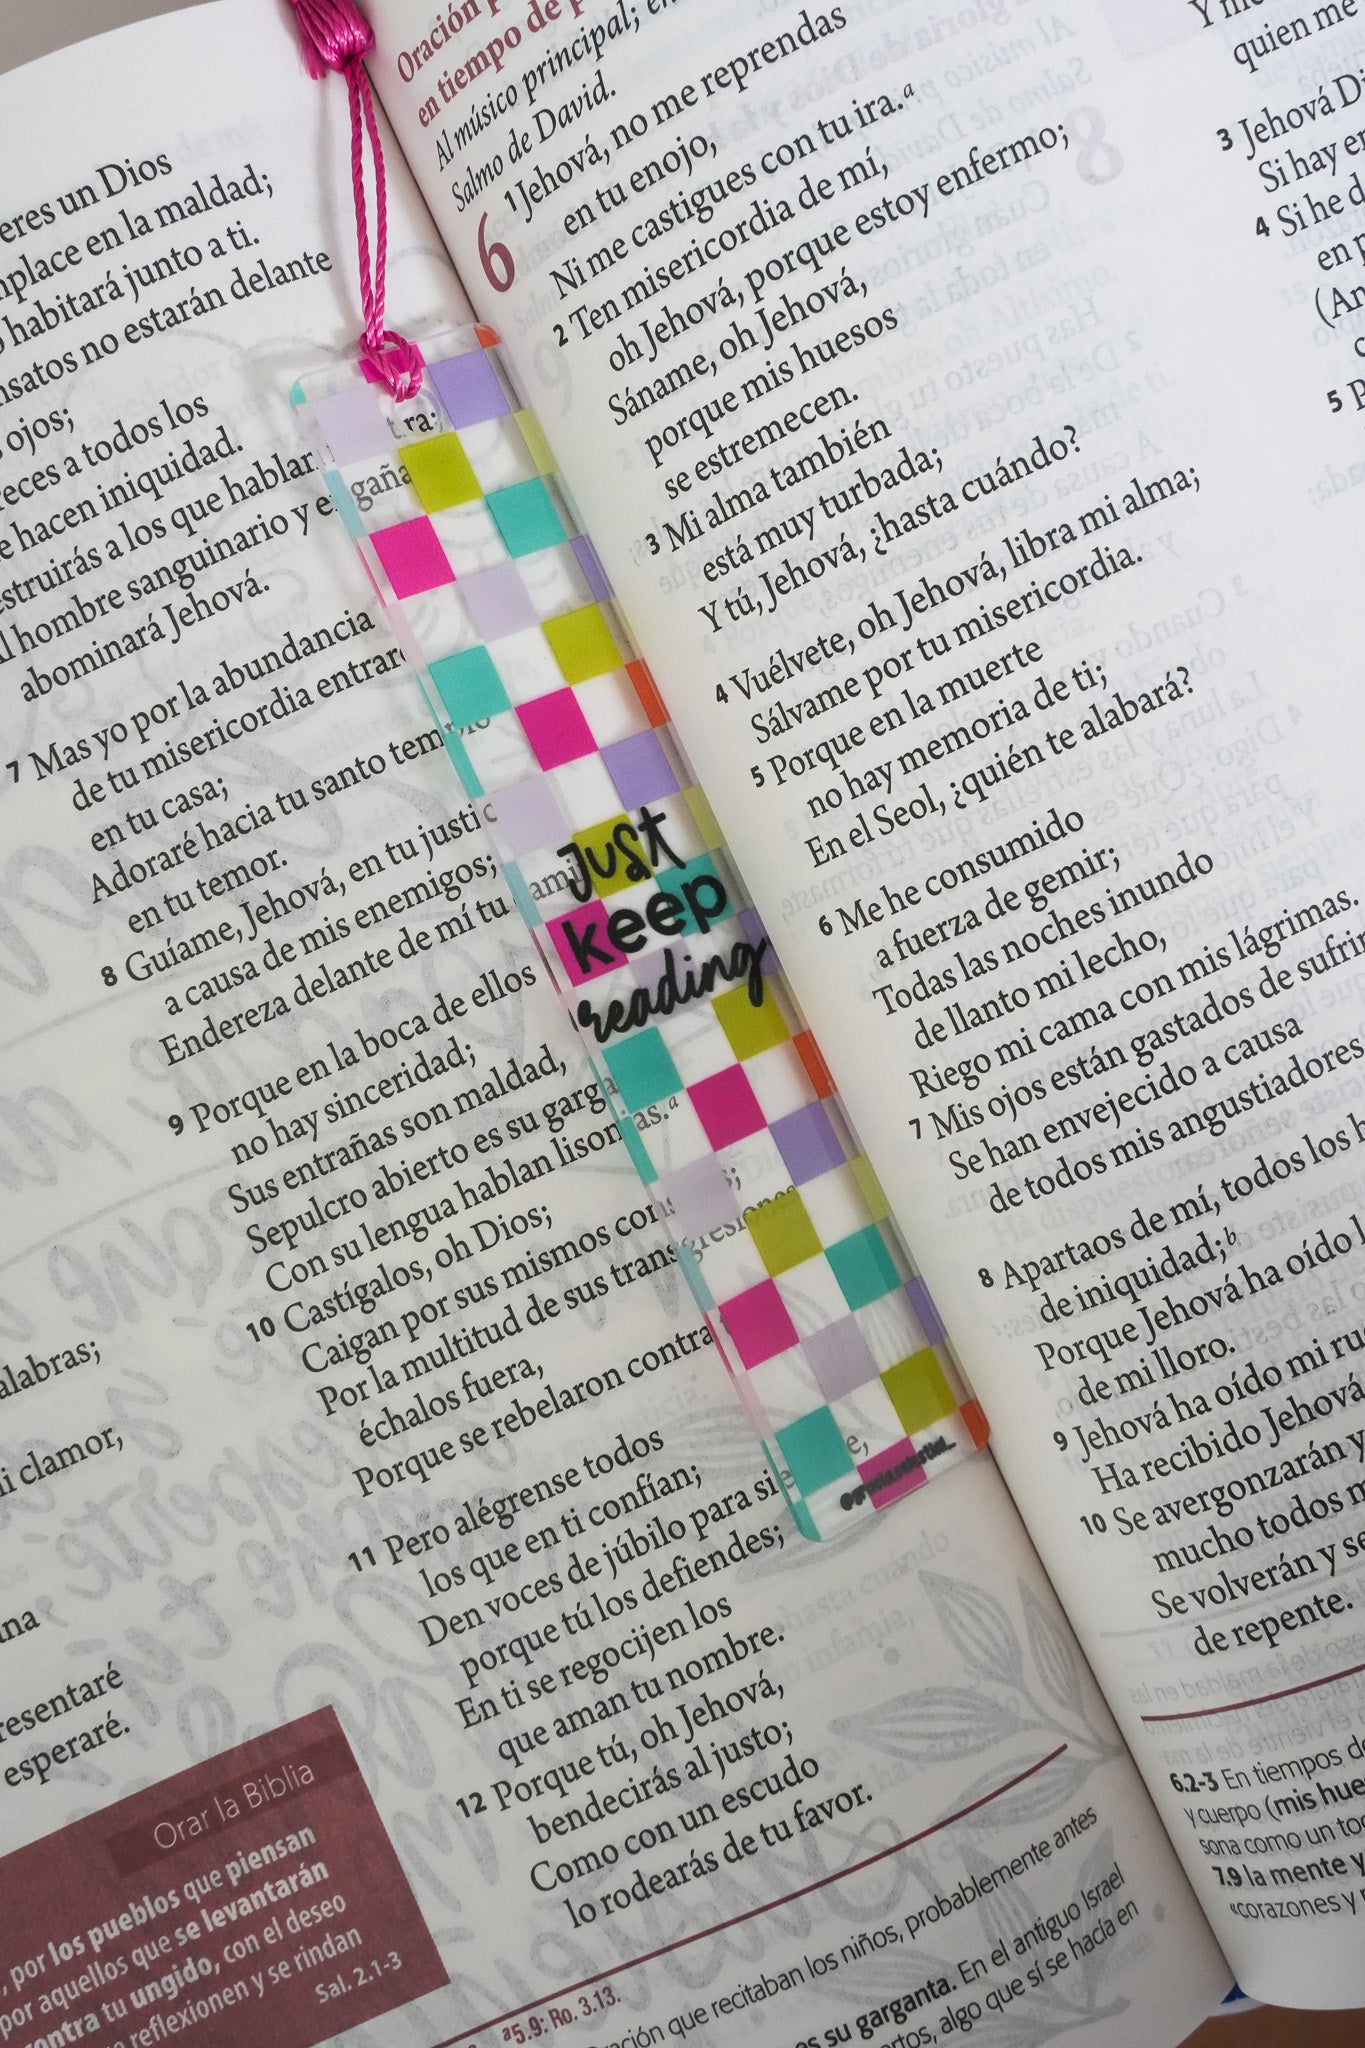 eres un Dios
en la maldad;
habitará junto a ti.
no estarán delante
ojos;
a todos los
hacen iniquidad.
a los que hablan
hombre sanguinario y
abominará Jehová.
7 Mas yo por la abundancia
de tu misericordia
en tu casa;
Adoraré hacia tu santo
en tu temor.
8 Guíame, Jehová, en tu
a causa de mis enemigos;
Endereza delante de mí tu
9 Porque en la boca de ellos
no hay sinceridad;
Sus entrañas son maldad,
Sepulcro abierto es su
Con su lengua hablan
10 Castígalos, oh Dios;
Caigan por sus mismos
Por la multitud de sus transgresiones
échalos fuera,
Porque se rebelaron contra
11 Pero alégrense todos
los que en ti confían;
Den voces de júbilo para
porque tú los defiendes;
En ti se regocijen los
que aman tu nombre.
12 Porque tú, oh Jehová,
bendecirás al justo;
Como con un escudo
lo rodearás de tu favor.
clamor,
esperaré.
Orar la Biblia
por los pueblos que piensan
por aquellos que se levantarán
contra tu ungido, con el deseo
reflexionen y se rindan
Sal. 2.1-3
a5.9: Ro. 3.13.
que recitaban los niños, probablemente antes
su garganta. En el antiguo Israel
algo que sí se hacía en
just
keep
reading
Oración
en tiempo de
Al músico principal; en
Salmo de David.
6 1 Jehová, no me reprendas
en tu enojo,
Ni me castigues con tu ira.a
2 Ten misericordia de mí,
oh Jehová, porque estoy enfermo;
Sáname, oh Jehová,
porque mis huesos
se estremecen.
3 Mi alma también
está muy turbada;
Y tú, Jehová, ¿hasta cuándo?
4 Vuélvete, oh Jehová, libra mi alma;
Sálvame por tu misericordia.
5 Porque en la muerte
no hay memoria de ti;
En el Seol, ¿quién te alabará?
6 Me he consumido
a fuerza de gemir;
Todas las noches inundo
de llanto mi lecho,
Riego mi cama con mis lágrimas.
7 Mis ojos están gastados de
Se han envejecido a causa
de todos mis angustiadores
8 Apartaos de mí, todos los
de iniquidad;b
Porque Jehová ha oído
de mi lloro.
9 Jehová ha oído mi
Ha recibido Jehová
10 Se avergonzarán y
mucho todos
Se volverán y
de repente.
6.2-3 En tiempos
y cuerpo (mis
como un
7.9 la mente y
«corazones y
quien me
3 Jehová
Si hay
4 Si he
en
5